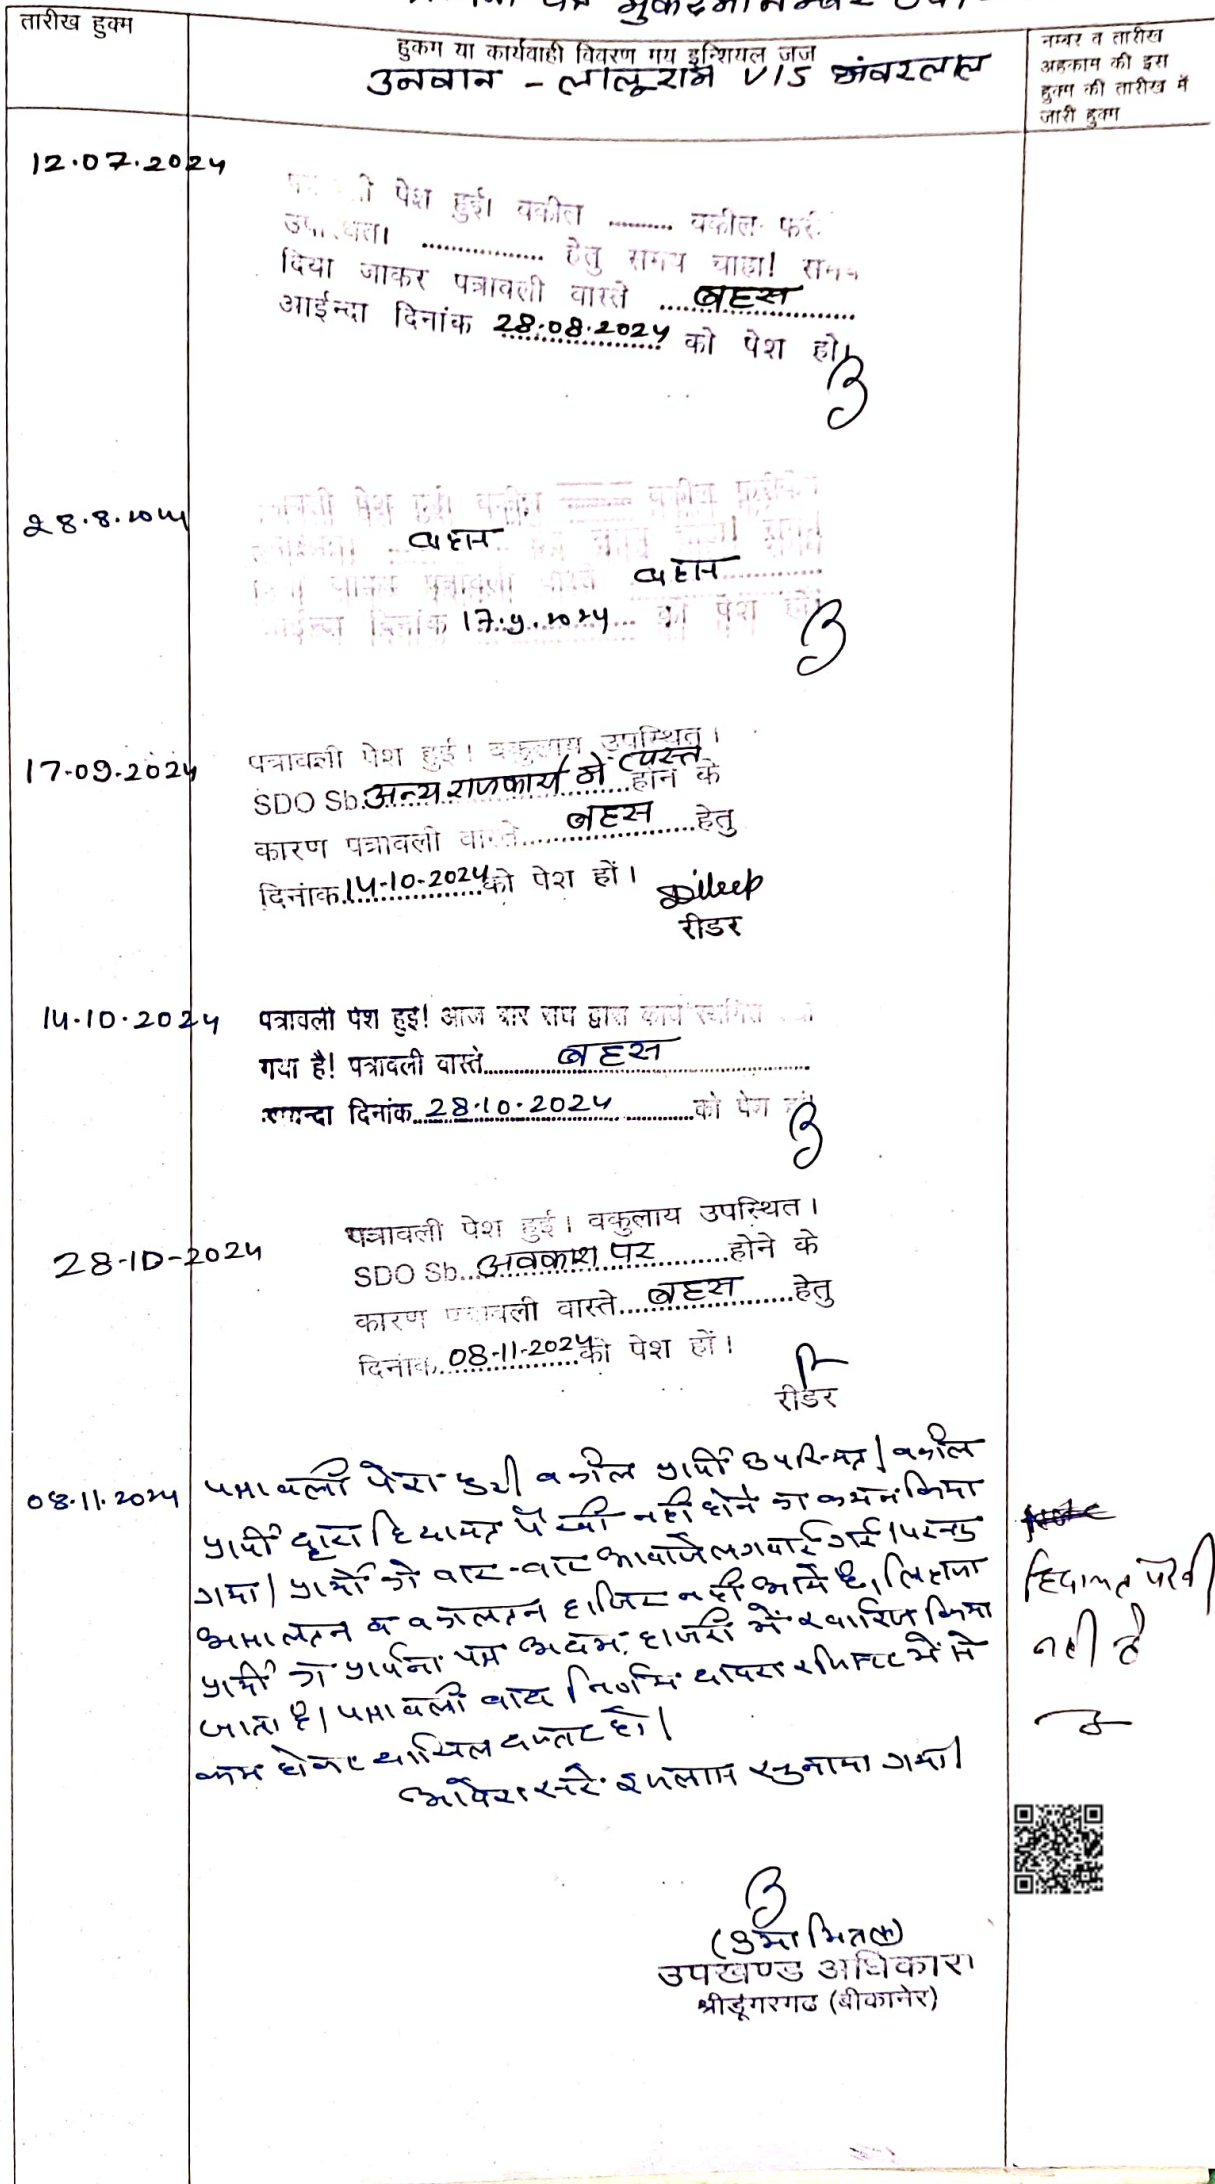 तारीख हुक्म
हुकम या कार्यवाही विवरण मय इन्शियल जज
उनवान - लालूराम V/S भंवरलाल
नम्बर व तारीख
अहकाम की इस
हुक्म की तारीख में
जारी हुक्म
12.07.2024
पेश हुई। वकील ......... वकील
................ हेतु समय चाहा! समय
दिया जाकर पत्रावली वास्ते ....बहस................
आईन्दा दिनांक 28.08.2024 को पेश हो।
28.8.2024
पेश हुई। वकील
बहस
पत्रावली वास्ते बहस
दिनांक 17.9.2024 को पेश हो
17-09-2024
पत्रावली पेश हुई। वकुलाय उपस्थित।
SDO Sb. अन्य राजकार्य में व्यस्त होने के
कारण पत्रावली वास्ते.......बहस.....हेतु
दिनांक.14-10-2024 को पेश हों।
Dileep
रीडर
14.10.2024
पत्रावली पेश हुई! आज बार संघ द्वारा कार्य स्थगित
गया है! पत्रावली वास्ते.........बहस..................
दिनांक 28.10.2024 ............को पेश
28-10-2024
पत्रावली पेश हुई। वकुलाय उपस्थित।
SDO Sb...अवकाश पर.........होने के
कारण पत्रावली वास्ते....बहस.......हेतु
दिनांक. 08-11-2024 को पेश हों।
रीडर
08.11.2024
पत्रावली पेश हुयी वकील प्रार्थी उपस्थित। वकील
प्रार्थी द्वारा हिदायत पैरवी नहीं होने का कथन किया
गया। प्रार्थी को बार-बार आवाजे लगवाई गई। परन्तु
असालतन व वकालतन हाजिर नहीं आये है, लिहाजा
प्रार्थी का प्रार्थना पत्र अदम हाजरी में खारिज किया
जाता है। पत्रावली बाद निर्णय दायरा रजिस्टर में से
कम होकर दाखिल दफ्तर हो।
आदेश सरे इजलास सुनाया गया।
हिदायत पैरवी
नहीं है
(उमा मित्तल)
उपखण्ड अधिकारी
श्रीडूंगरगढ (बीकानेर)